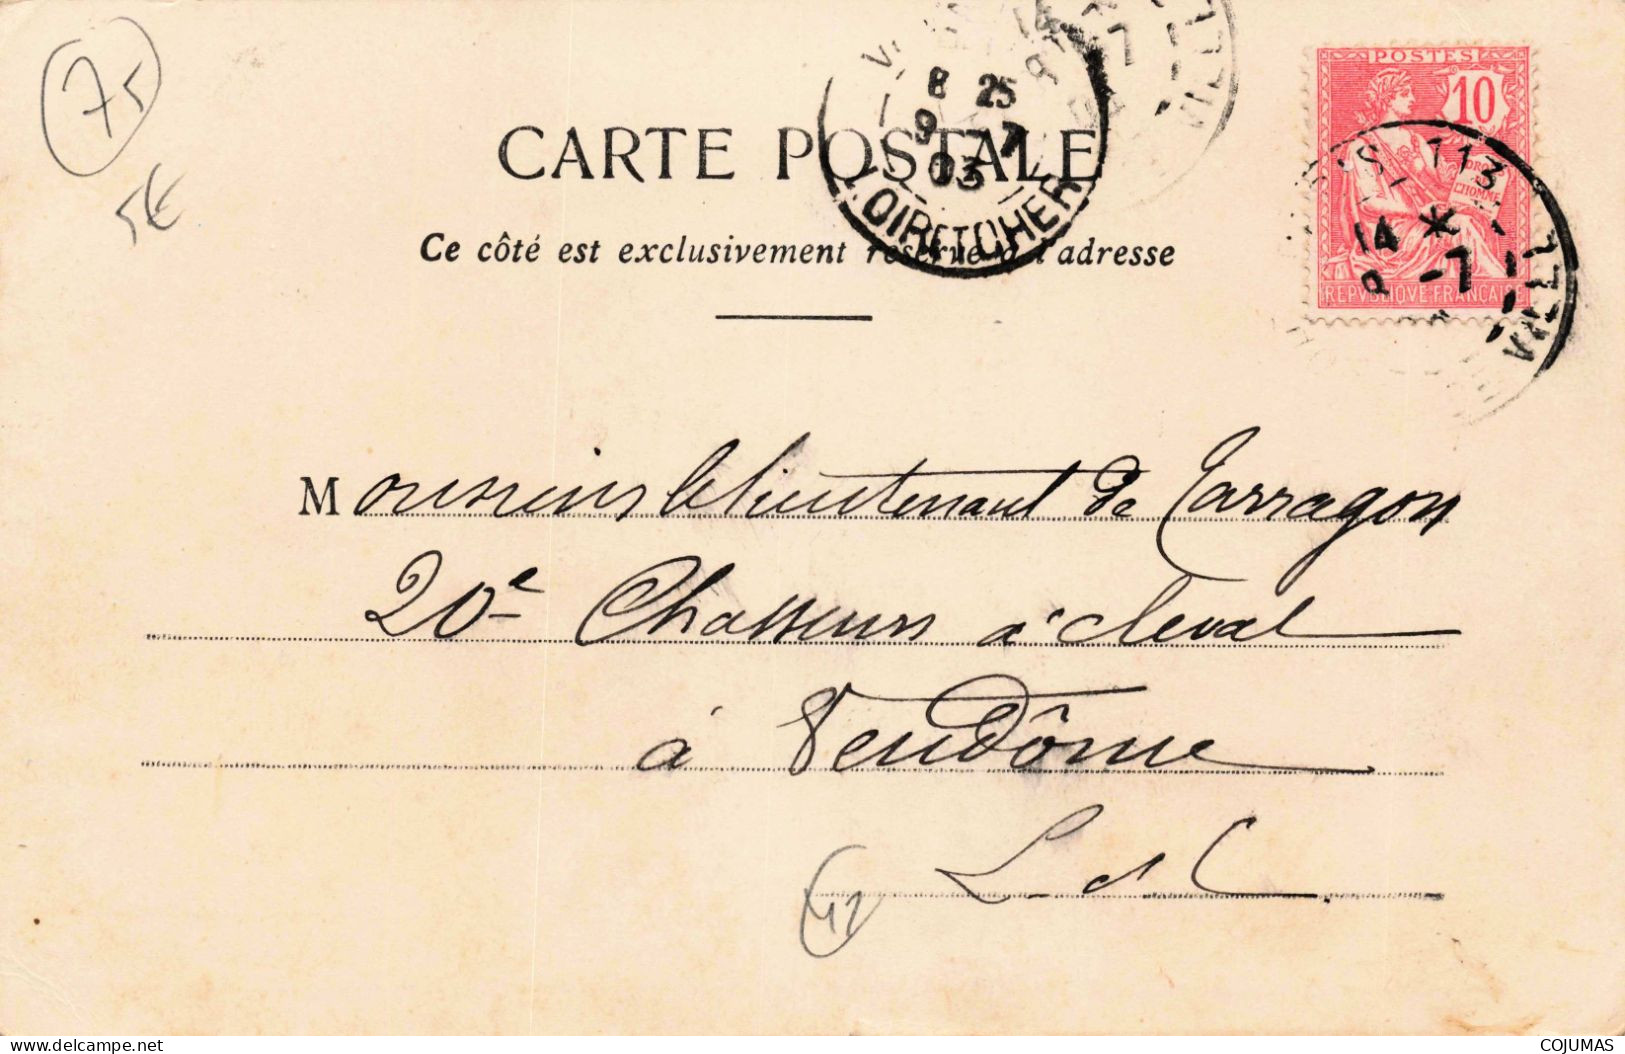 75
5€
CARTE POSTALE
Ce côté est exclusivement réservé à l'adresse
8 25
9 7
03
LOIR ET CHER
14
VILLI
POSTES
10
DROITS
DE
L'HOMME
REPVBLIQVE FRANÇAISE
PARIS 113
14 *
8 -7
VILLI
Monsieur le lieutenant de Tarragon
20e Chasseurs à cheval
à Vendôme
L et C
41
delcampe.net
COJUMAS